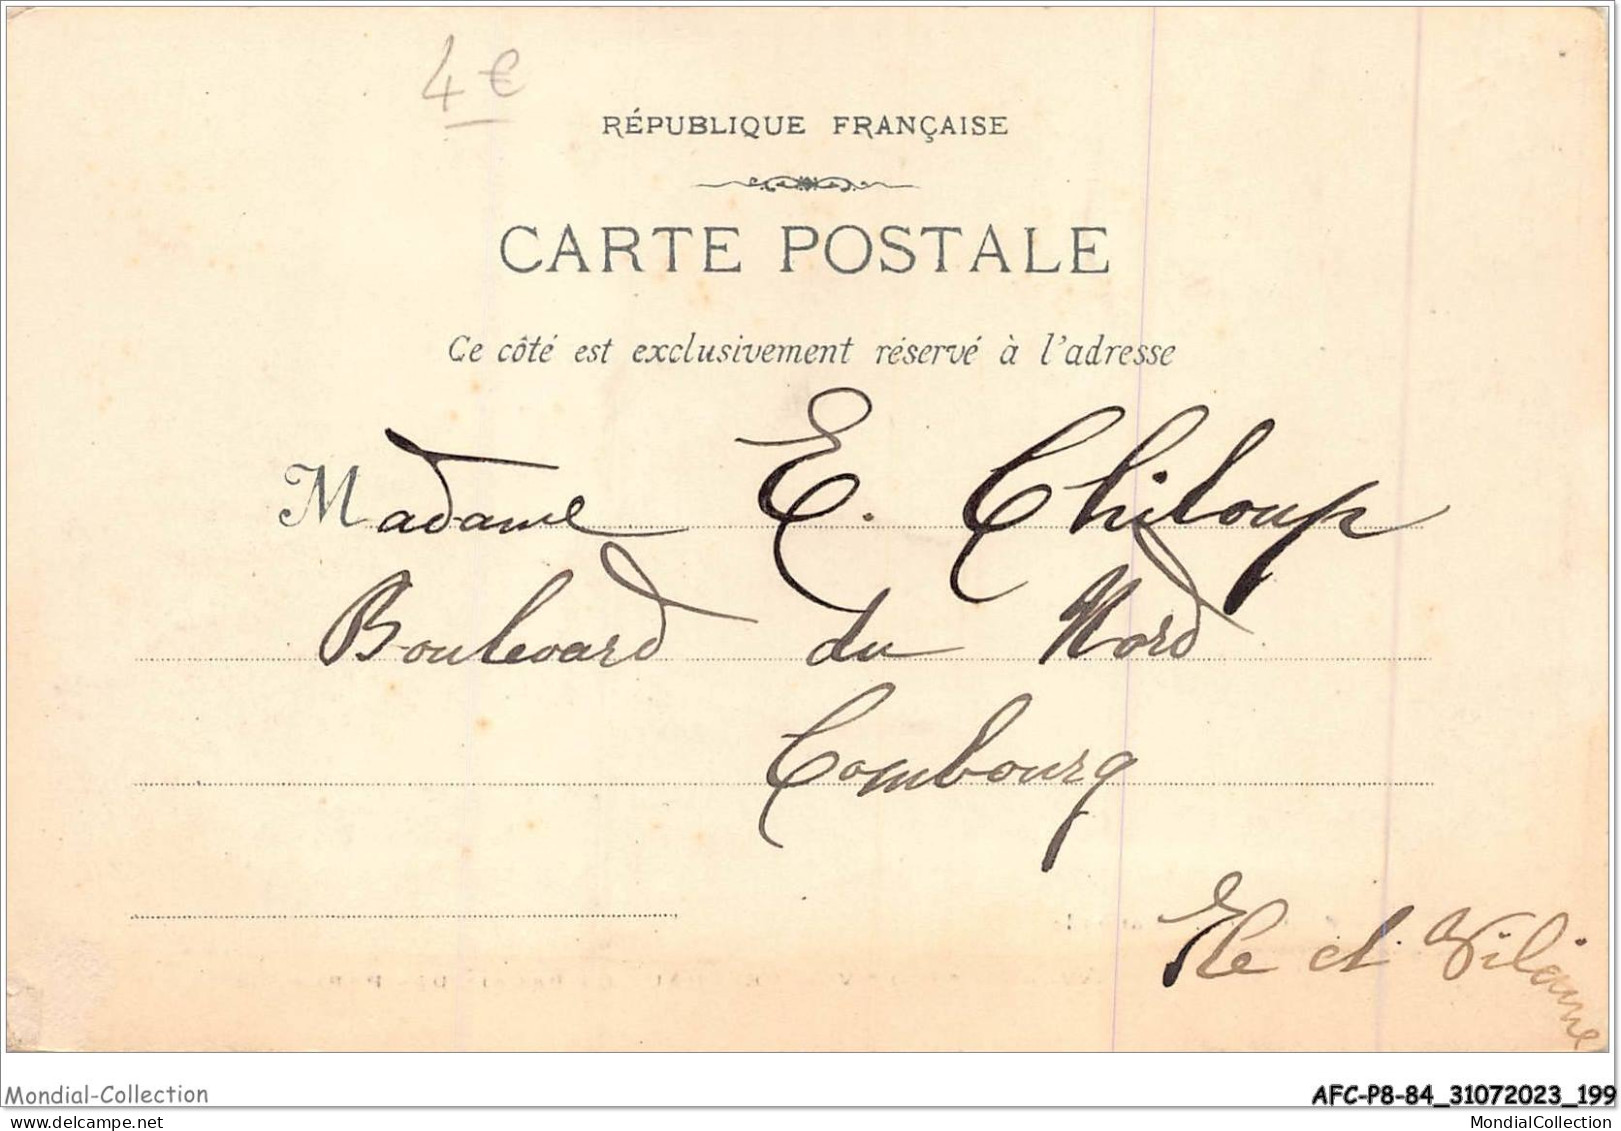 4€
RÉPUBLIQUE FRANÇAISE
CARTE POSTALE
Ce côté est exclusivement réservé à l'adresse
Madame E. Chiloup
Boulevard du Nord
Combourg
Ile et Vilaine
Mondial-Collection
AFC-P8-84_31072023_199
MondialCollection
MondialCollection